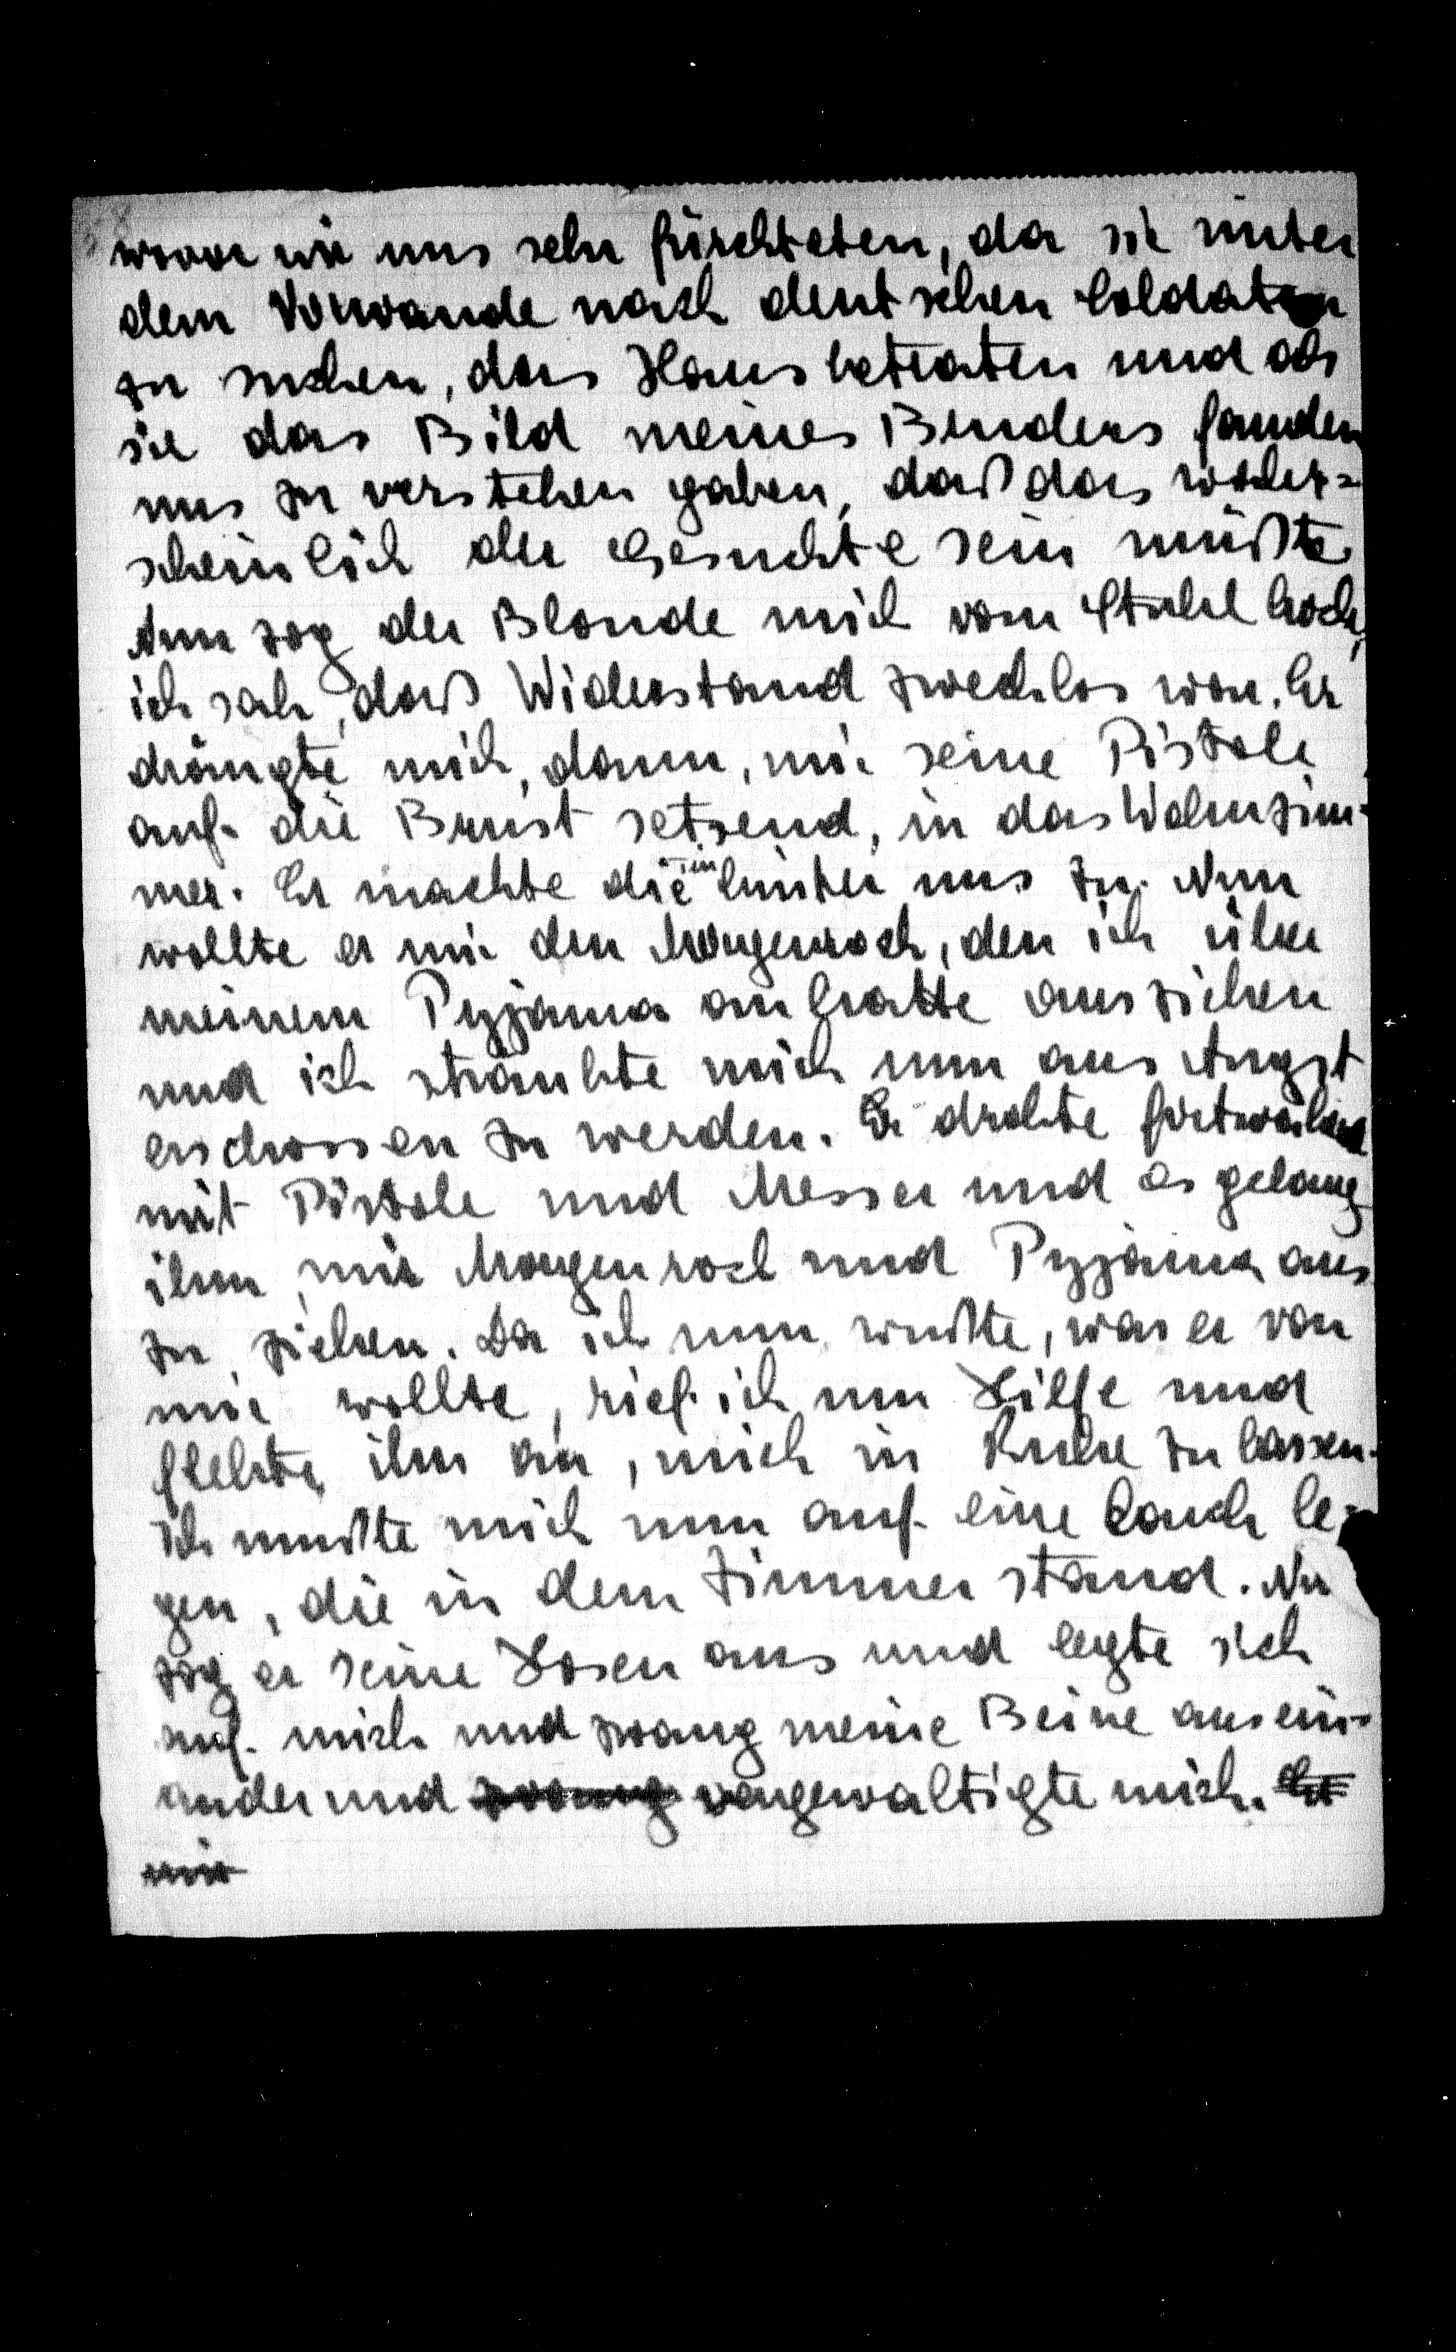 wovor wir uns sehr fürchteten, da sie unter
dem Vorwande nach deutschen Soldaten
zu suchen, das Haus betraten und als
sie das Bild meines Bruders fanden
uns zu verstehen gaben, daß das wahr=
scheinlich der Gesuchte sein müßte.
Nun zog der Blonde mich vom Stuhl hoch,
ich sah, daß Widerstand zwecklos war. Er
drängte mich, dann, mir seine Pistole
auf die Brust setzend, in das Wohnzim-
mer. Er machte die hinter uns zu. Nun
wollte er mir den Morgenrock, den ich über
meinem Pyjama anhatte ausziehen
und ich sträubte mich nun aus Angst
erschossen zu werden. Er drohte fortwährend
mit Pistole und Messer und es gelang
ihm, mir Morgenrock und Pyjama aus
zu ziehen. Da ich nun wußte, was er von
mir wollte, rief ich um Hilfe und
flehte ihn an, mich in Ruhe zu lassen.
Ich mußte mich nun auf eine Couch le=
gen, die in dem Zimmer stand. Nu
zog er seine Hosen aus und legte sich
auf mich und zwang meine Beine ausein=
ander und zwang vergewaltigte mich. Er
mir